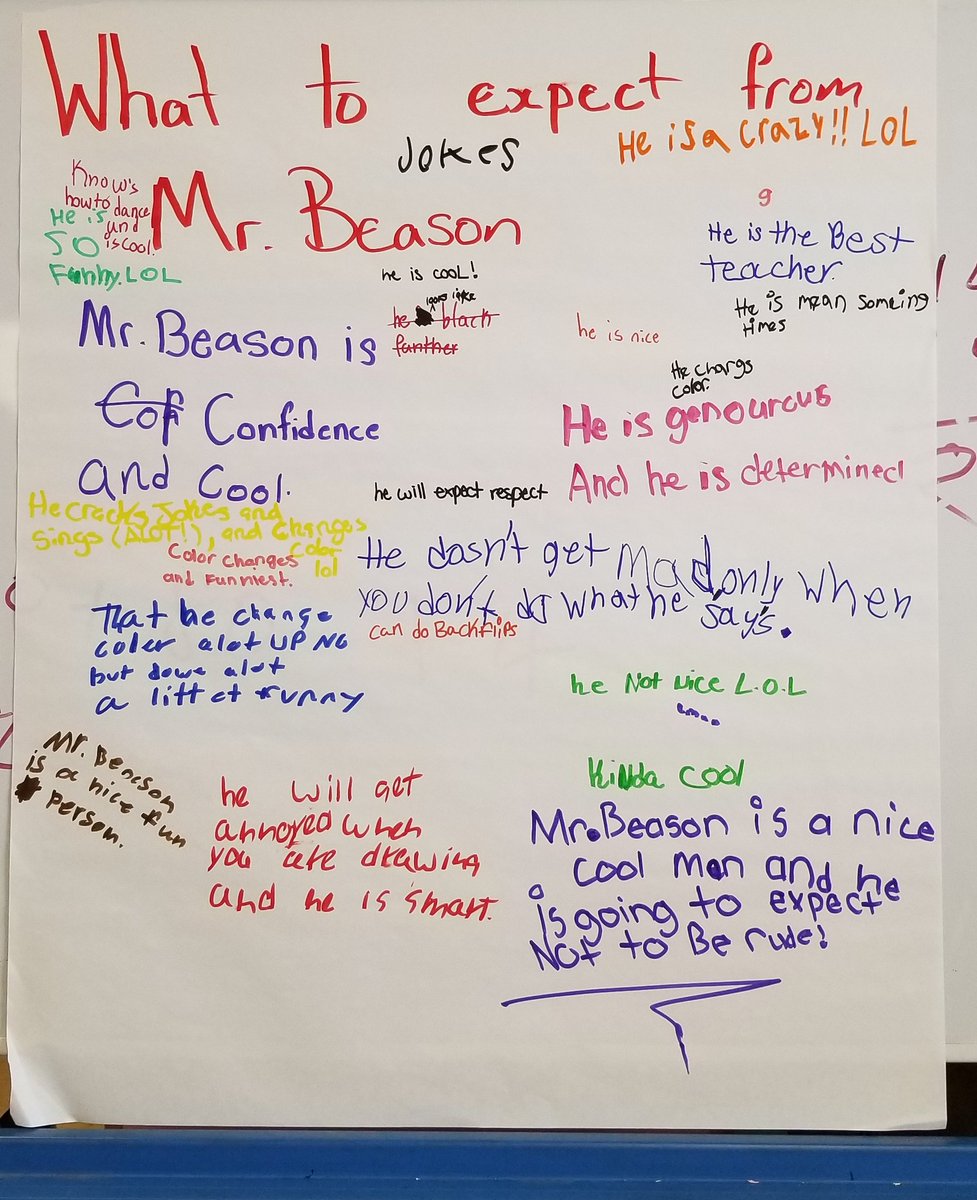 What to expect from
Jokes
He is a crazy!! LOL
Know's
how to dance
and
is cool.
He is
so
Funny. LOL
Mr. Beason
g
He is the Best
teacher.
he is cool!
looks like
he black
fanther
He is mean someing!
times
Mr. Beason is
he is nice
He chargs
color.
Cof Confidence
and Cool.
He is genourcus
And he is determined
he will expect respect
He cracks Jokes and
sings (ALOT!), and changes
color
lol
Color changes
and Funniest.
He dosn't get mad, only when
you don't do what he say's.
can do Backflips
That he change
coler alot UP NO
but dowe alot
a littet funny
he Not nice L.O.L
Kinda cool
Mr. Beason
is a nice fun
person.
he will get
annoyed when
you are drawing
and he is smart.
Mr. Beason is a nice
cool man and he
is going to expecte
Not to Be rude!